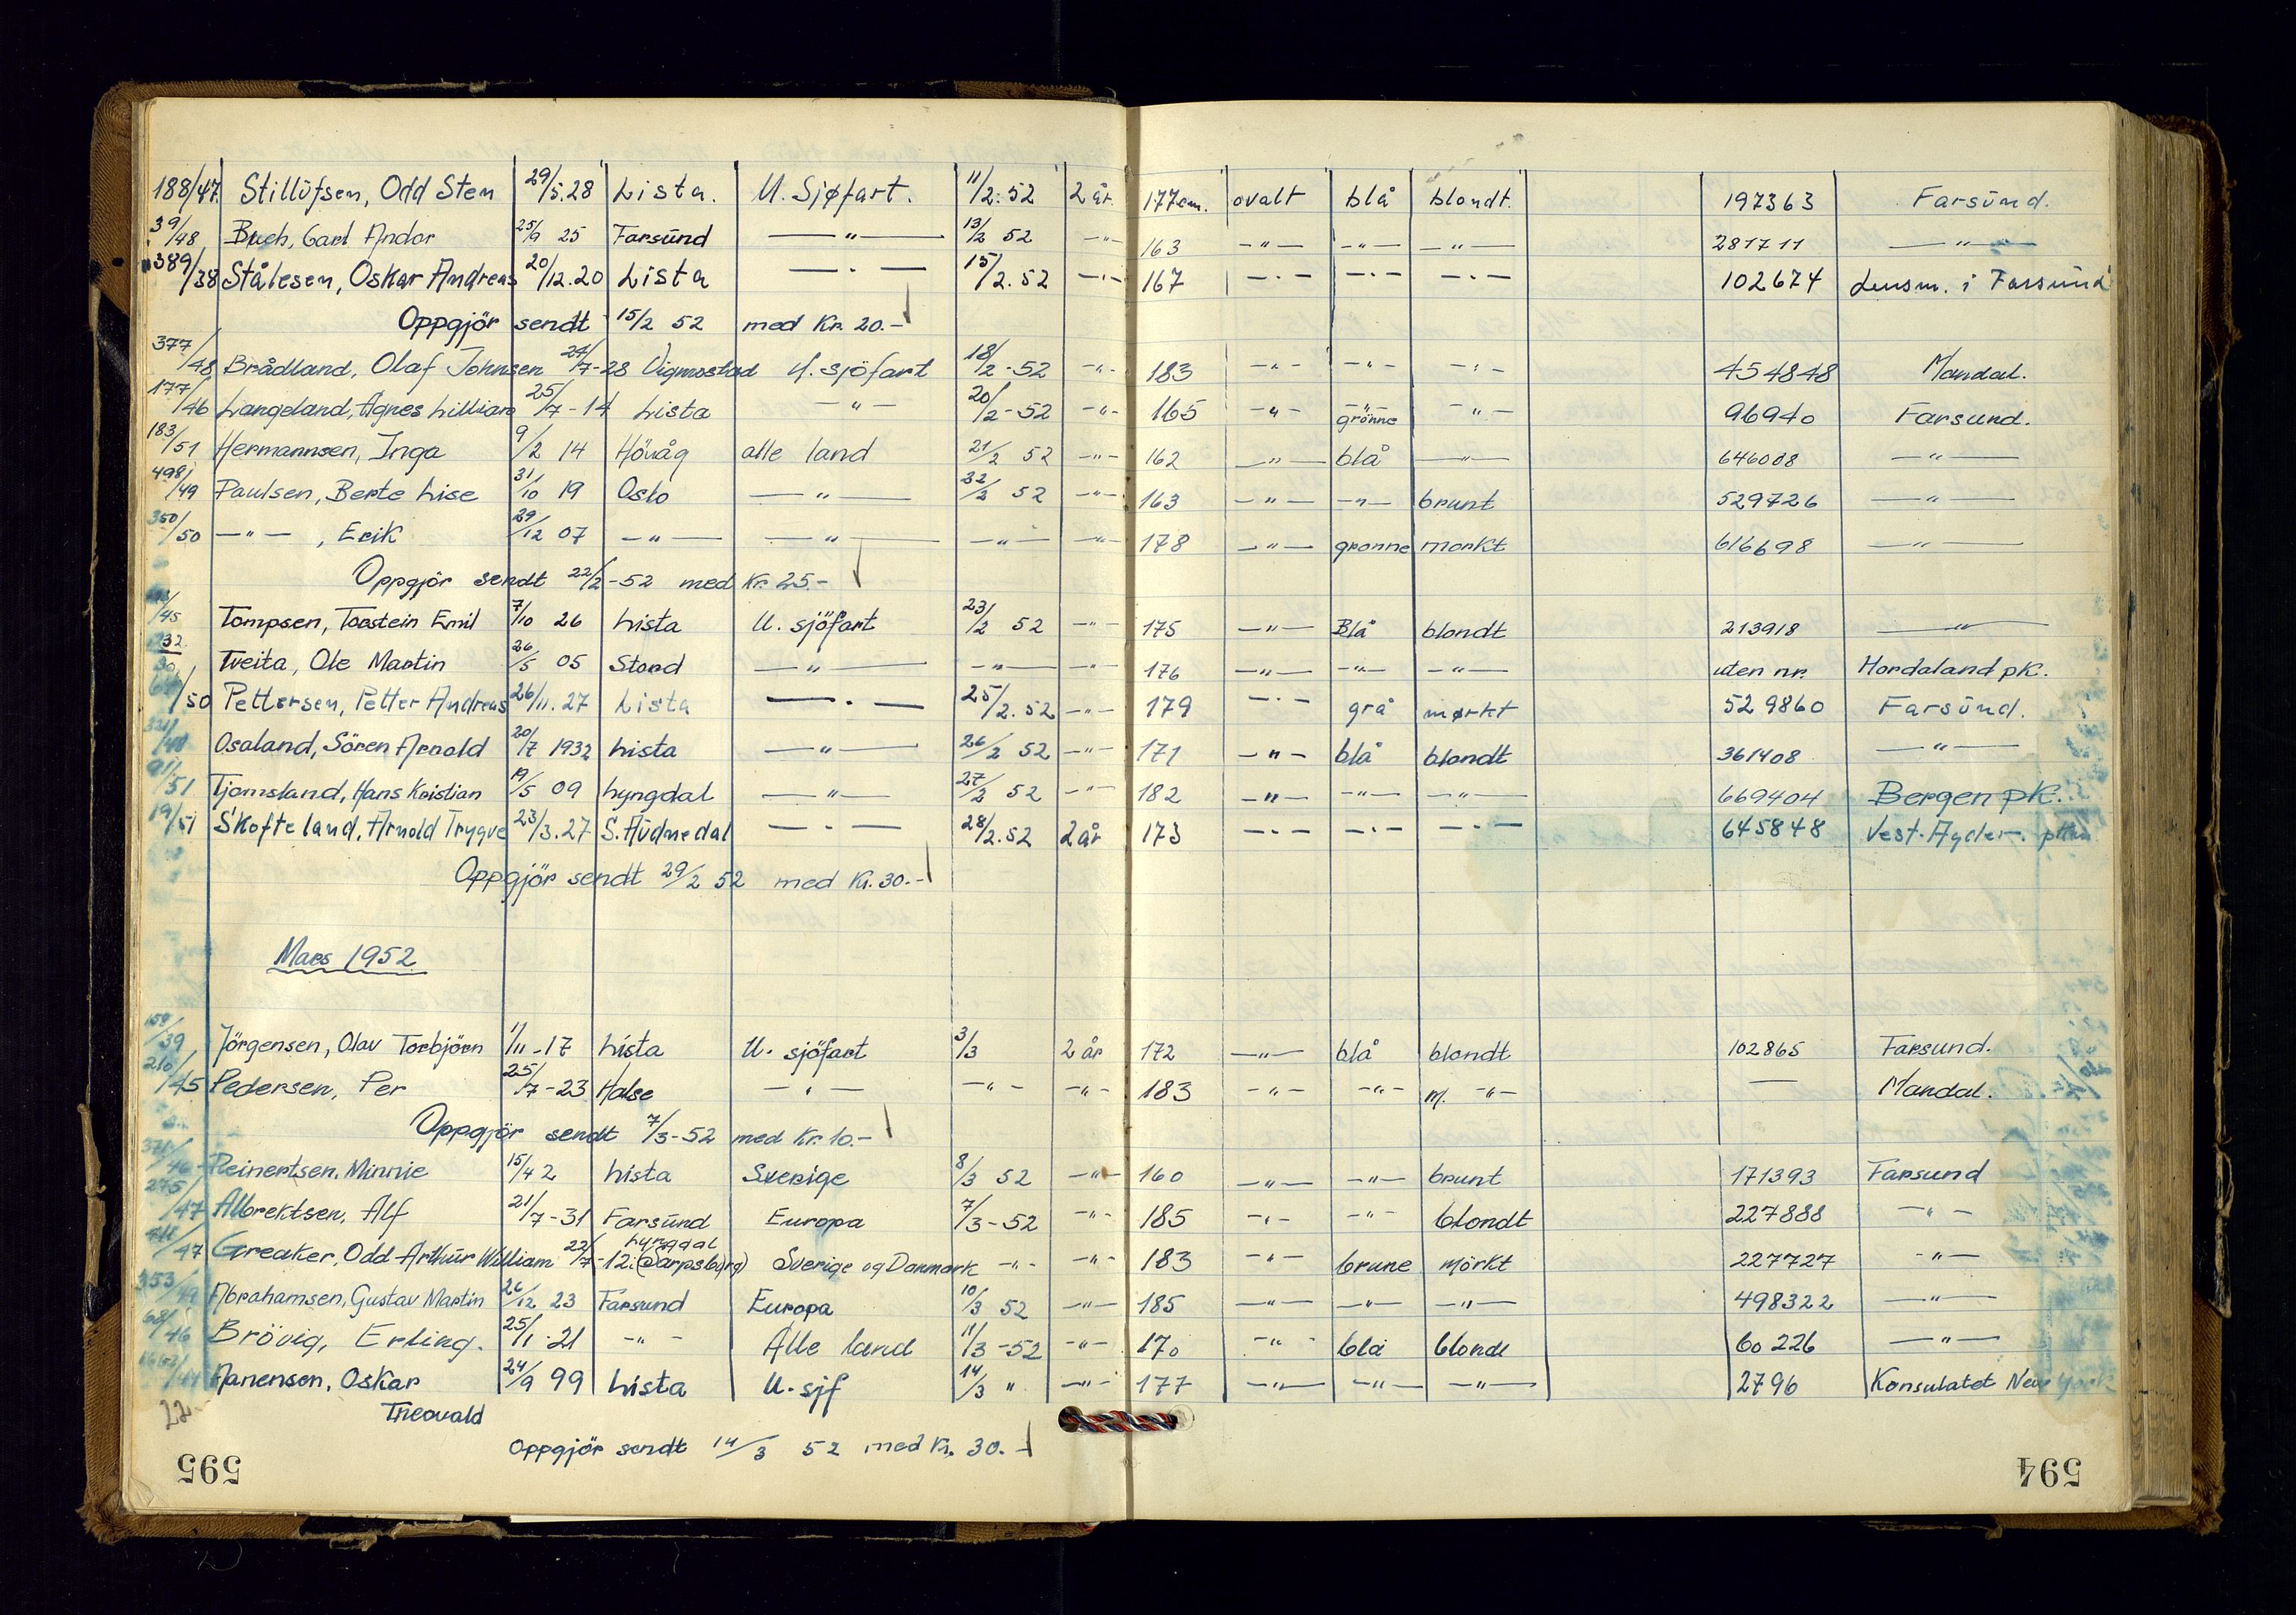 188/47 Stillufsen, Odd Sten 29/5.28 Lista. U. Sjøfart. 11/2.52 2 år. 177 cm. ovalt blå blondt. 197363 Farsund.
39/48 Buch, Carl Andor 25/9 25 Farsund —"— 13/2 52 —"— 163 —"— —"— —"— 281711 —"—
389/38 Stålesen, Oskar Andreas 20/12.20 Lista —"— 15/2.52 —"— 167 —"— —"— —"— 102674 Lensm. i Farsund
Oppgjör sendt 15/2 52 med Kr. 20.-
377/48 Brådland, Olaf Johnsen 24/7-28 Vigmostad U. sjöfart 18/2-52 —"— 183 —"— —"— —"— 454848 Mandal.
177/46 Langeland, Agnes Lilliam 25/7-14 Lista —"— 20/2-52 —"— 165 —"— —"— grönne —"— 96940 Farsund.
183/51 Hermannsen, Inga 9/2 14 Hövåg alle land 21/2 52 —"— 162 —"— blå —"— 646008 —"—
498/49 Paulsen, Berte Lise 31/10 19 Oslo —"— 22/2 52 —"— 163 —"— —"— brunt 529726 —"—
350/50 —"— , Erik 29/12 07 —"— —"— —"— —"— 178 —"— grønne mørkt 616698 —"—
Oppgjör sendt 22/2-52 med Kr. 25.-
/45 Tompsen, Torstein Emil 7/10 26 Lista U. sjöfart 23/2 52 —"— 175 —"— Blå blondt 213918 —"—
Tveita, Ole Martin 26/5 05 Stord —"— —"— —"— 176 —"— —"— —"— uten nr. Hordaland pk.
/50 Pettersen, Petter Andreas 26/11.27 Lista —"— 25/2.52 —"— 179 —"— grå mørkt 529860 Farsund.
Osaland, Sören Arnold 20/7 1932 Lista —"— 26/2 52 —"— 171 —"— blå blondt 361408 —"—
91/51 Tjomsland, Hans Kristian 19/5 09 Lyngdal —"— 27/2 52 —"— 182 —"— —"— —"— 669404 Bergen pk.
19/51 Skofteland, Arnold Trygve 23/3.27 S. Audnedal —"— 28/2.52 2 år 173 —"— —"— —"— 645848 Vest-Agder.
Oppgjör sendt 29/2 52 med Kr. 30.-
Mars 1952
159/39 Jörgensen, Olav Torbjörn 1/11-17 Lista U. sjöfart 3/3 2 år 172 —"— blå blondt 102865 Farsund.
210/45 Pedersen, Per 25/7-23 Halse —"— —"— —"— 183 —"— —"— m. —"— — Mandal.
Oppgjör sendt 7/3-52 med Kr. 10.-
371/46 Reinertsen, Minnie 15/4 2 Lista Sverige 8/3 52 —"— 160 —"— —"— brunt 171393 Farsund
275/47 Albrektsen, Alf 21/7-31 Farsund Europa 7/3-52 —"— 185 —"— —"— blondt 227888 —"—
/47 Greaker, Odd Arthur William 22/7-12 Lyngdal (Sarpsborg) Sverige og Danmark —"— —"— 183 —"— brune mörkt 227727 —"—
353/49 Abrahamsen, Gustav Martin 26/12 23 Farsund Europa 10/3 52 —"— 185 —"— —"— —"— 498322 —"—
68/46 Brövig, Erling. 25/1-21 —"— Alle land 11/3-52 —"— 170 —"— blå blondt 60226 —"—
Aanensen, Oskar 24/9 99 Lista U. sjf 14/3 " —"— 177 —"— —"— —"— 2796 Konsulatet New York
22 Theovald
Oppgjör sendt 14/3 52 med Kr. 30.-
595 594